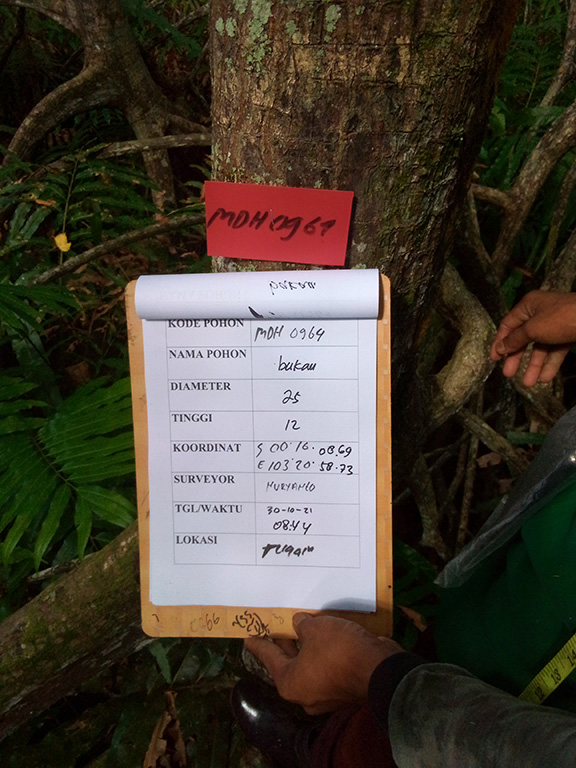 MDH 0964
bakau
KODE POHON MDH 0964
NAMA POHON bakau
DIAMETER 25
TINGGI 12
KOORDINAT S 00°16.08.69
E 103°20.58.73
SURVEYOR
TGL/WAKTU 30-10-21
08:44
LOKASI
0966